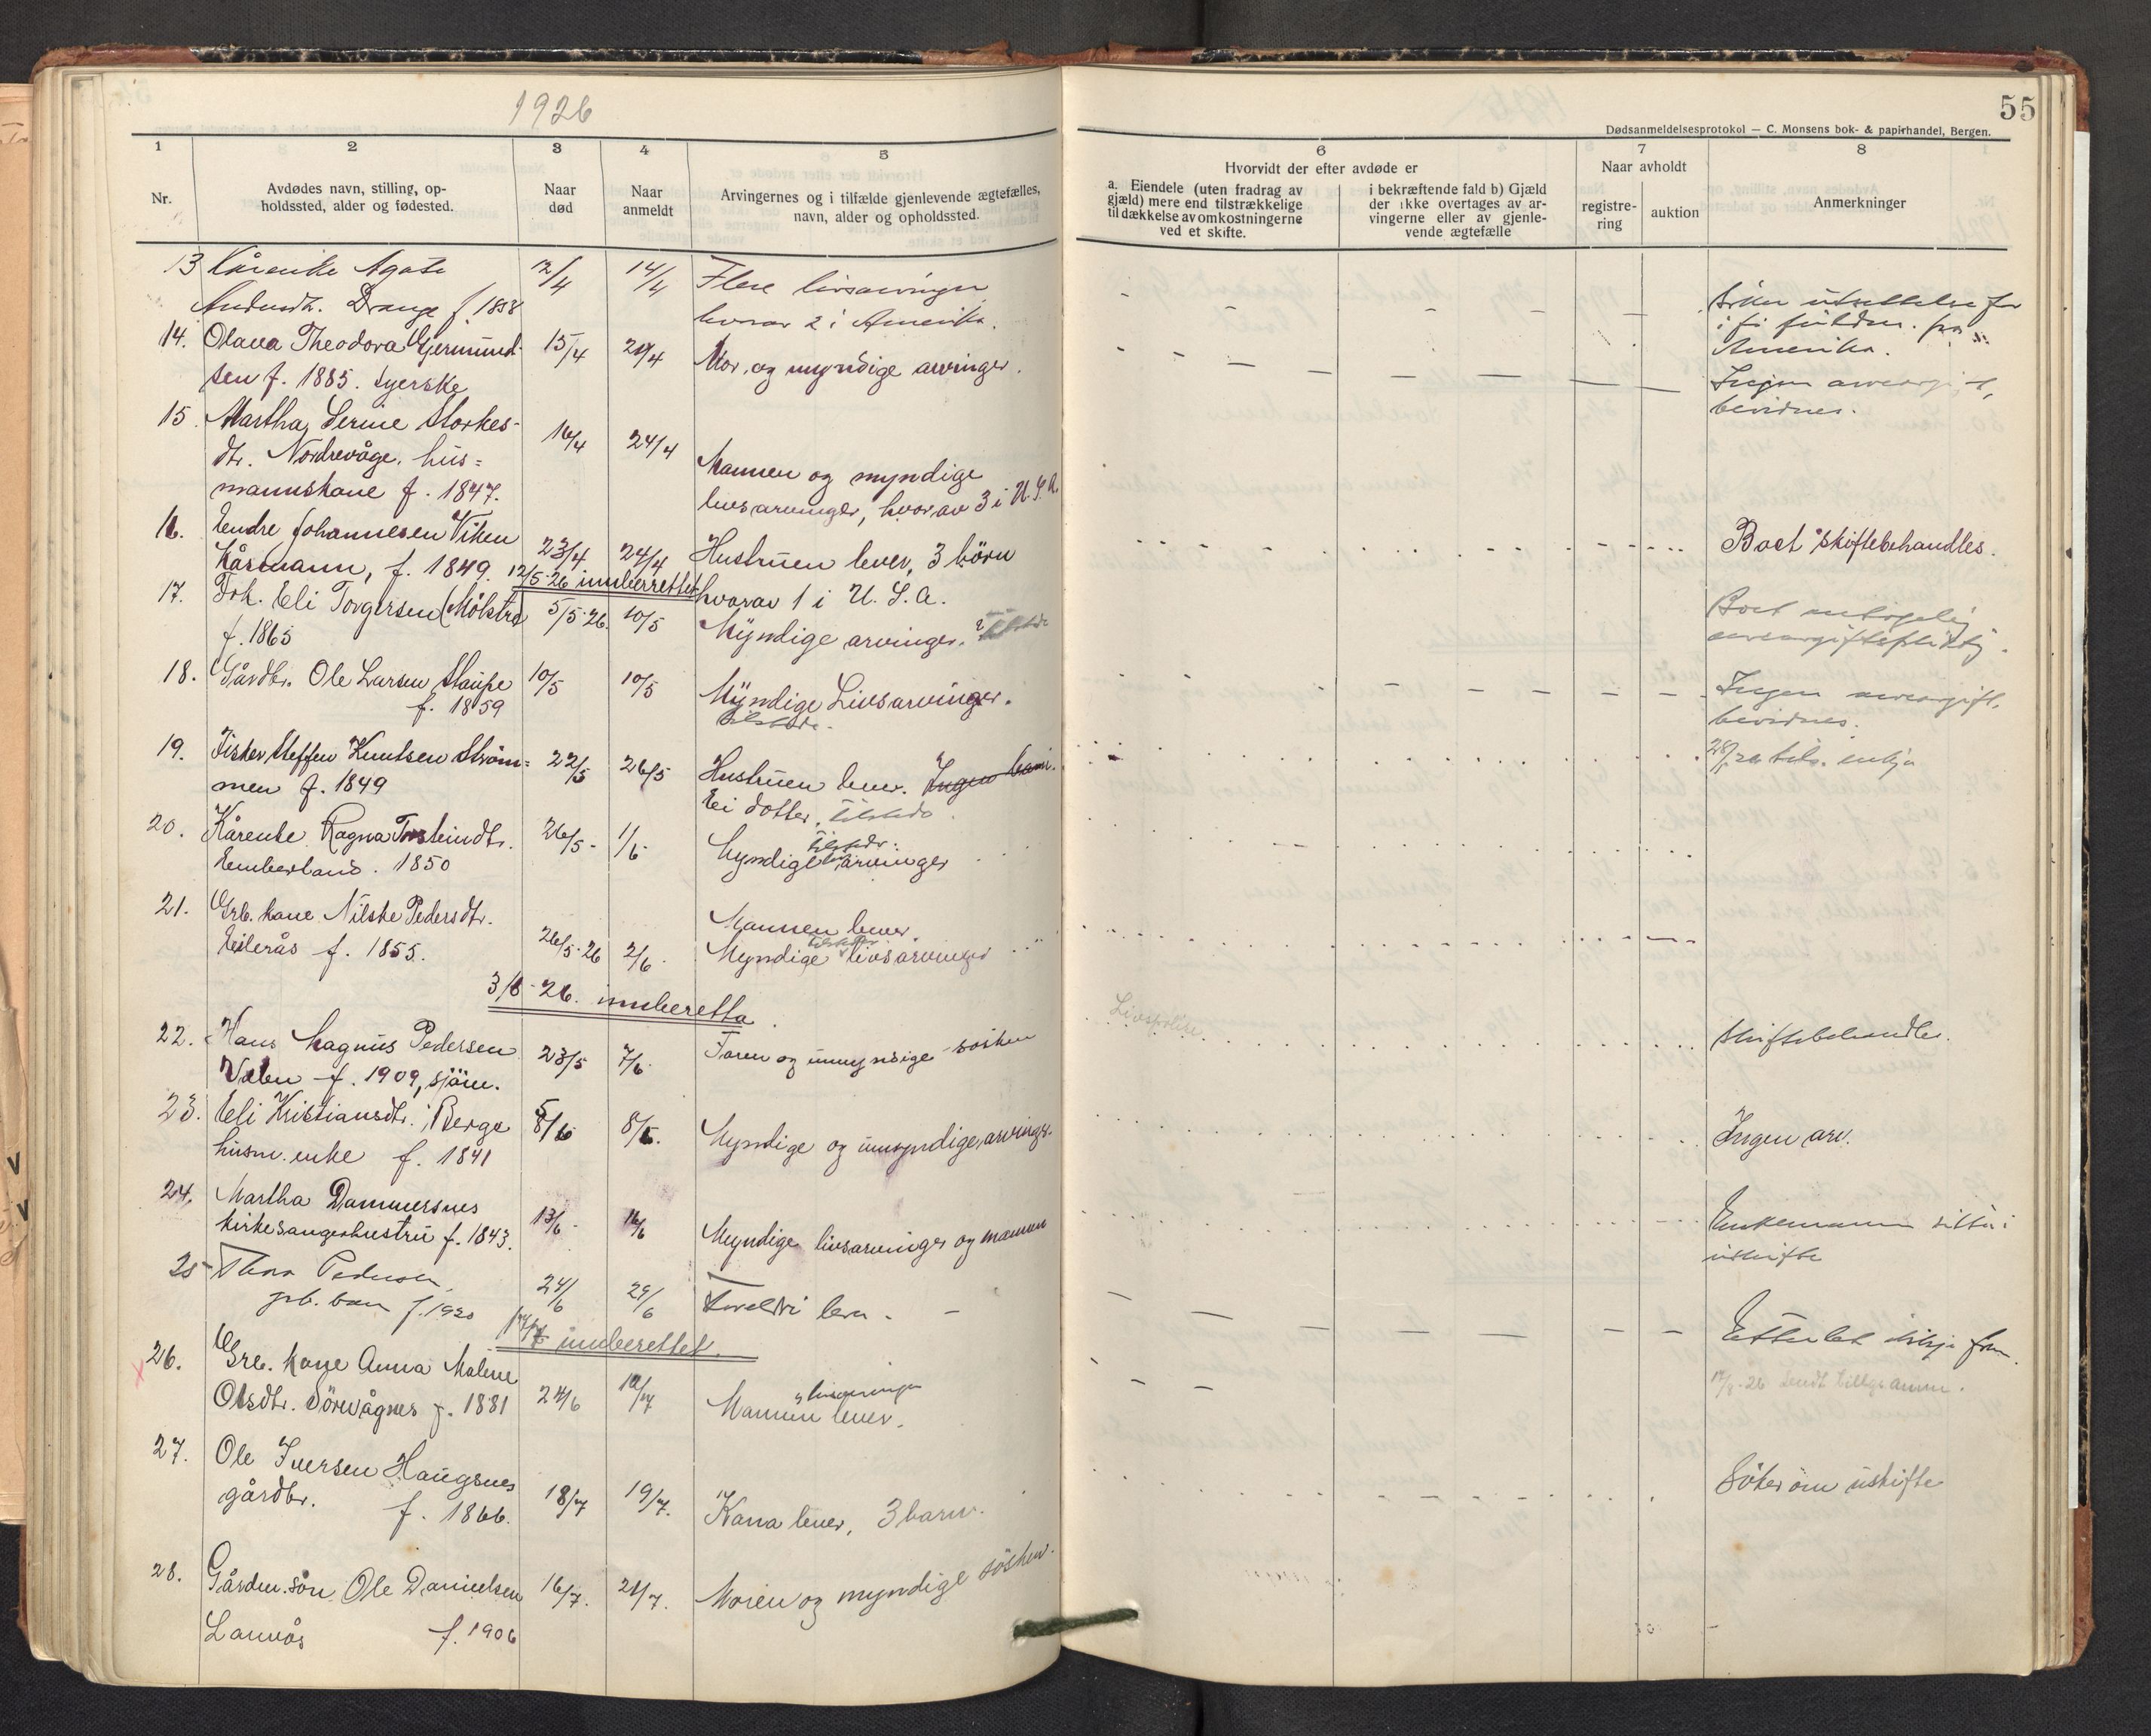 1926
55
Dødsanmeldelsesprotokol — C. Monsens bok- & papirhandel, Bergen.
1 2 3 4 5 6 7 8
Nr.
Avdødes navn, stilling, op-
holdssted, alder og fødested.
Naar
død
Naar
anmeldt
Arvingernes og i tilfælde gjenlevende ægtefælles,
navn, alder og opholdssted.
Hvorvidt der efter avdøde er
a. Eiendele (uten fradrag av
gjæld) mere end tilstrækkelige
til dækkelse av omkostningerne
ved et skifte.
i bekræftende fald b) Gjæld
der ikke overtages av ar-
vingerne eller av gjenle-
vende ægtefælle
Naar avholdt
registre-
ring
auktion
Anmerkninger
13 Kårenke Agate 12/4 14/4 Flere livsarvinger
Drange f. 1858 hvorav 2 i Amerika.
Amerika.
14. Olava Theodora Germund- 15/4 20/4 Mor, og myndige arvinger.
sen f. 1885. Syerske
Ingen arveavgift,
bevidnes.
15 Martha Serine Storkes- 16/4 24/4
dtr. Nordrevåge, hus-
mannskone f. 1847.
Mannen og myndige
livsarvinger, hvorav 3 i U.S.A.
16. Endre Johannesen Viken 23/4 24/4 Hustruen lever, 3 börn
Kårmann, f. 1849. hvorav 1 i U.S.A.
Boet skiftebehandles.
12/5-26 innberettet
17. Frk. Eli Torgersen (Mölstre) 5/5-26. 10/5 Myndige arvinger.
f. 1865
Boet
arveavgiftspliktig.
18. Gårdbr. Ole Larsen Staupe 10/5 10/5 Myndige Livsarvinger.
f. 1859 tilstede.
Ingen arveavgift,
bevidnes.
19. Fisker Steffen Knutsen Ström- 22/5 26/5 Hustruen lever. Ingen barn.
men f. 1849 Ei dotter. tilstede.
20. Kårenke Ragna Torsteindtr. 26/5- 1/6 tilstede.
Emberland. 1850 Myndige arvinger
21. Grb. kone Nilske Pedersdtr. Mannen lever
Eilerås f. 1855. 26/5-26 2/6. Myndige livsarvinger
3/6-26. innberetta.
22. Hans Magnus Pedersen 23/5 7/6. Faren og umyndige sösken
Valen f. 1909, sjöm.
Livspolise
Skiftebehandles.
23. Eli Kristiansdtr. Berge 5/6 8/6. Myndige og umyndige arvinger.
husm. enke f. 1841
Ingen arv.
24. Martha Dammersnes 13/6- 16/6 Myndige livsarvinger og mannen
kirkesangerhustru f. 1843.
Enkemannen sitter i
uskifte
25 Thora Pedersen 24/6 29/6 Foreldri lever.
grb. barn f. 1920
innberettet.
Etterlet ikkje
26. Grb. kone Anna Malene 24/6 12/7 og livsarvinger
Olsdtr. Sörevågnes f. 1881 Mannen lever.
27. Ole Iversen Haugsnes 18/7 19/7. Kona lever, 3 barn.
gårdbr. f. 1866.
Söker om uskifte
28. Gårdm. sön Ole Danielsen 16/7. 21/7. Moren og myndige sösken.
f. 1906